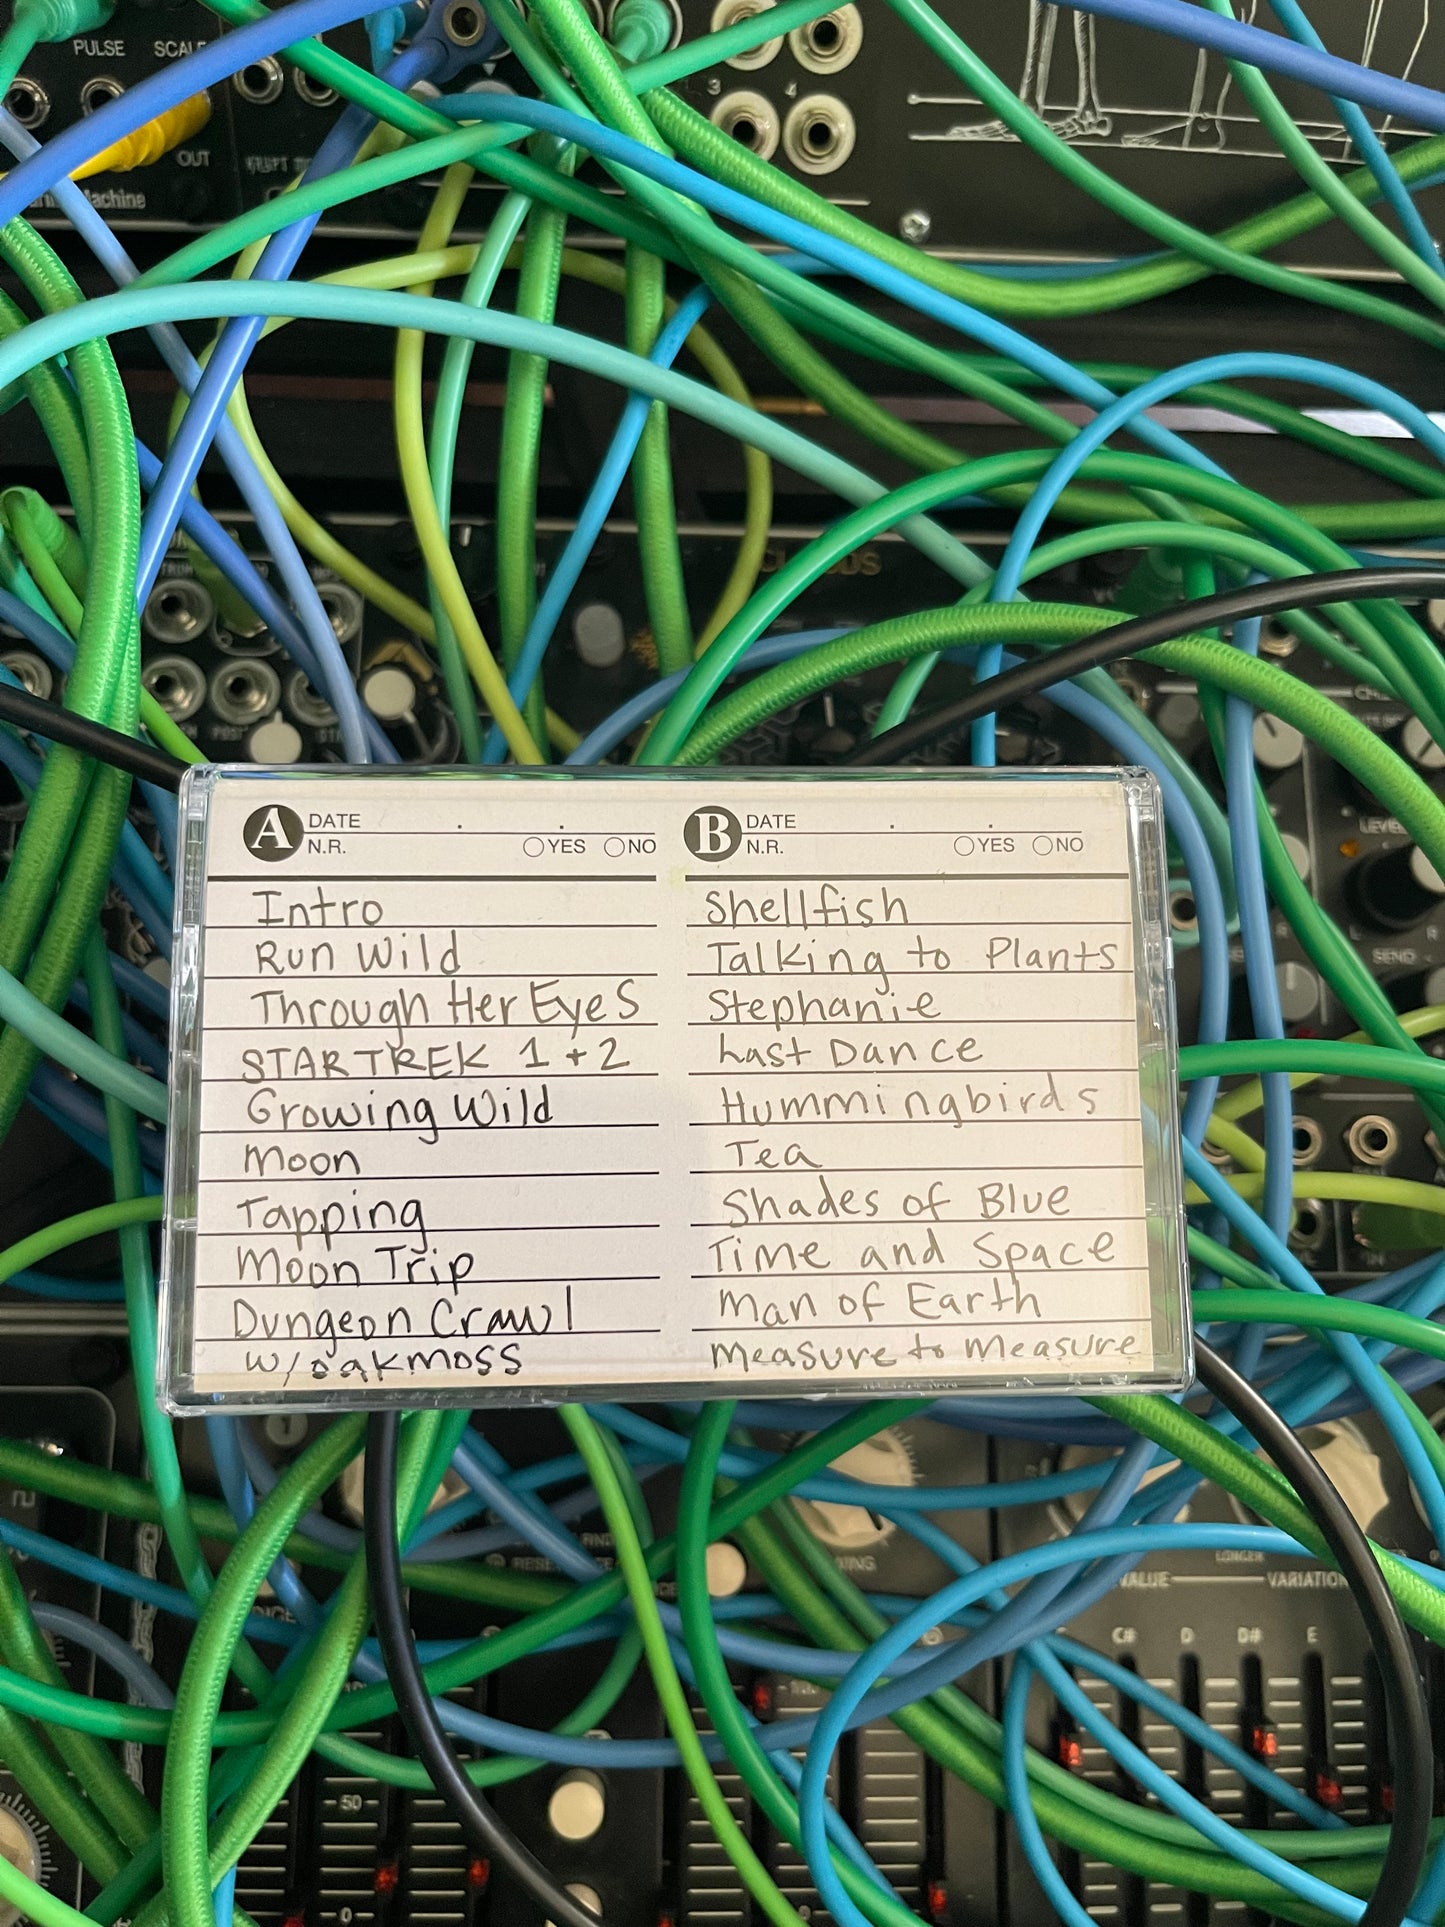 PULSE
OUT
3 4
A DATE
N.R. YES NO
Intro
Run Wild
Through Her Eyes
STAR TREK 1 + 2
Growing Wild
Moon
Tapping
Moon Trip
Dungeon Crawl
w/oakmoss
B DATE
N.R. YES NO
Shellfish
Talking to Plants
Stephanie
Last Dance
Hummingbirds
Tea
Shades of Blue
Time and Space
Man of Earth
Measure to Measure
SEND
R
L
LONGER
VALUE VARIATION
C# D D# E
50
0